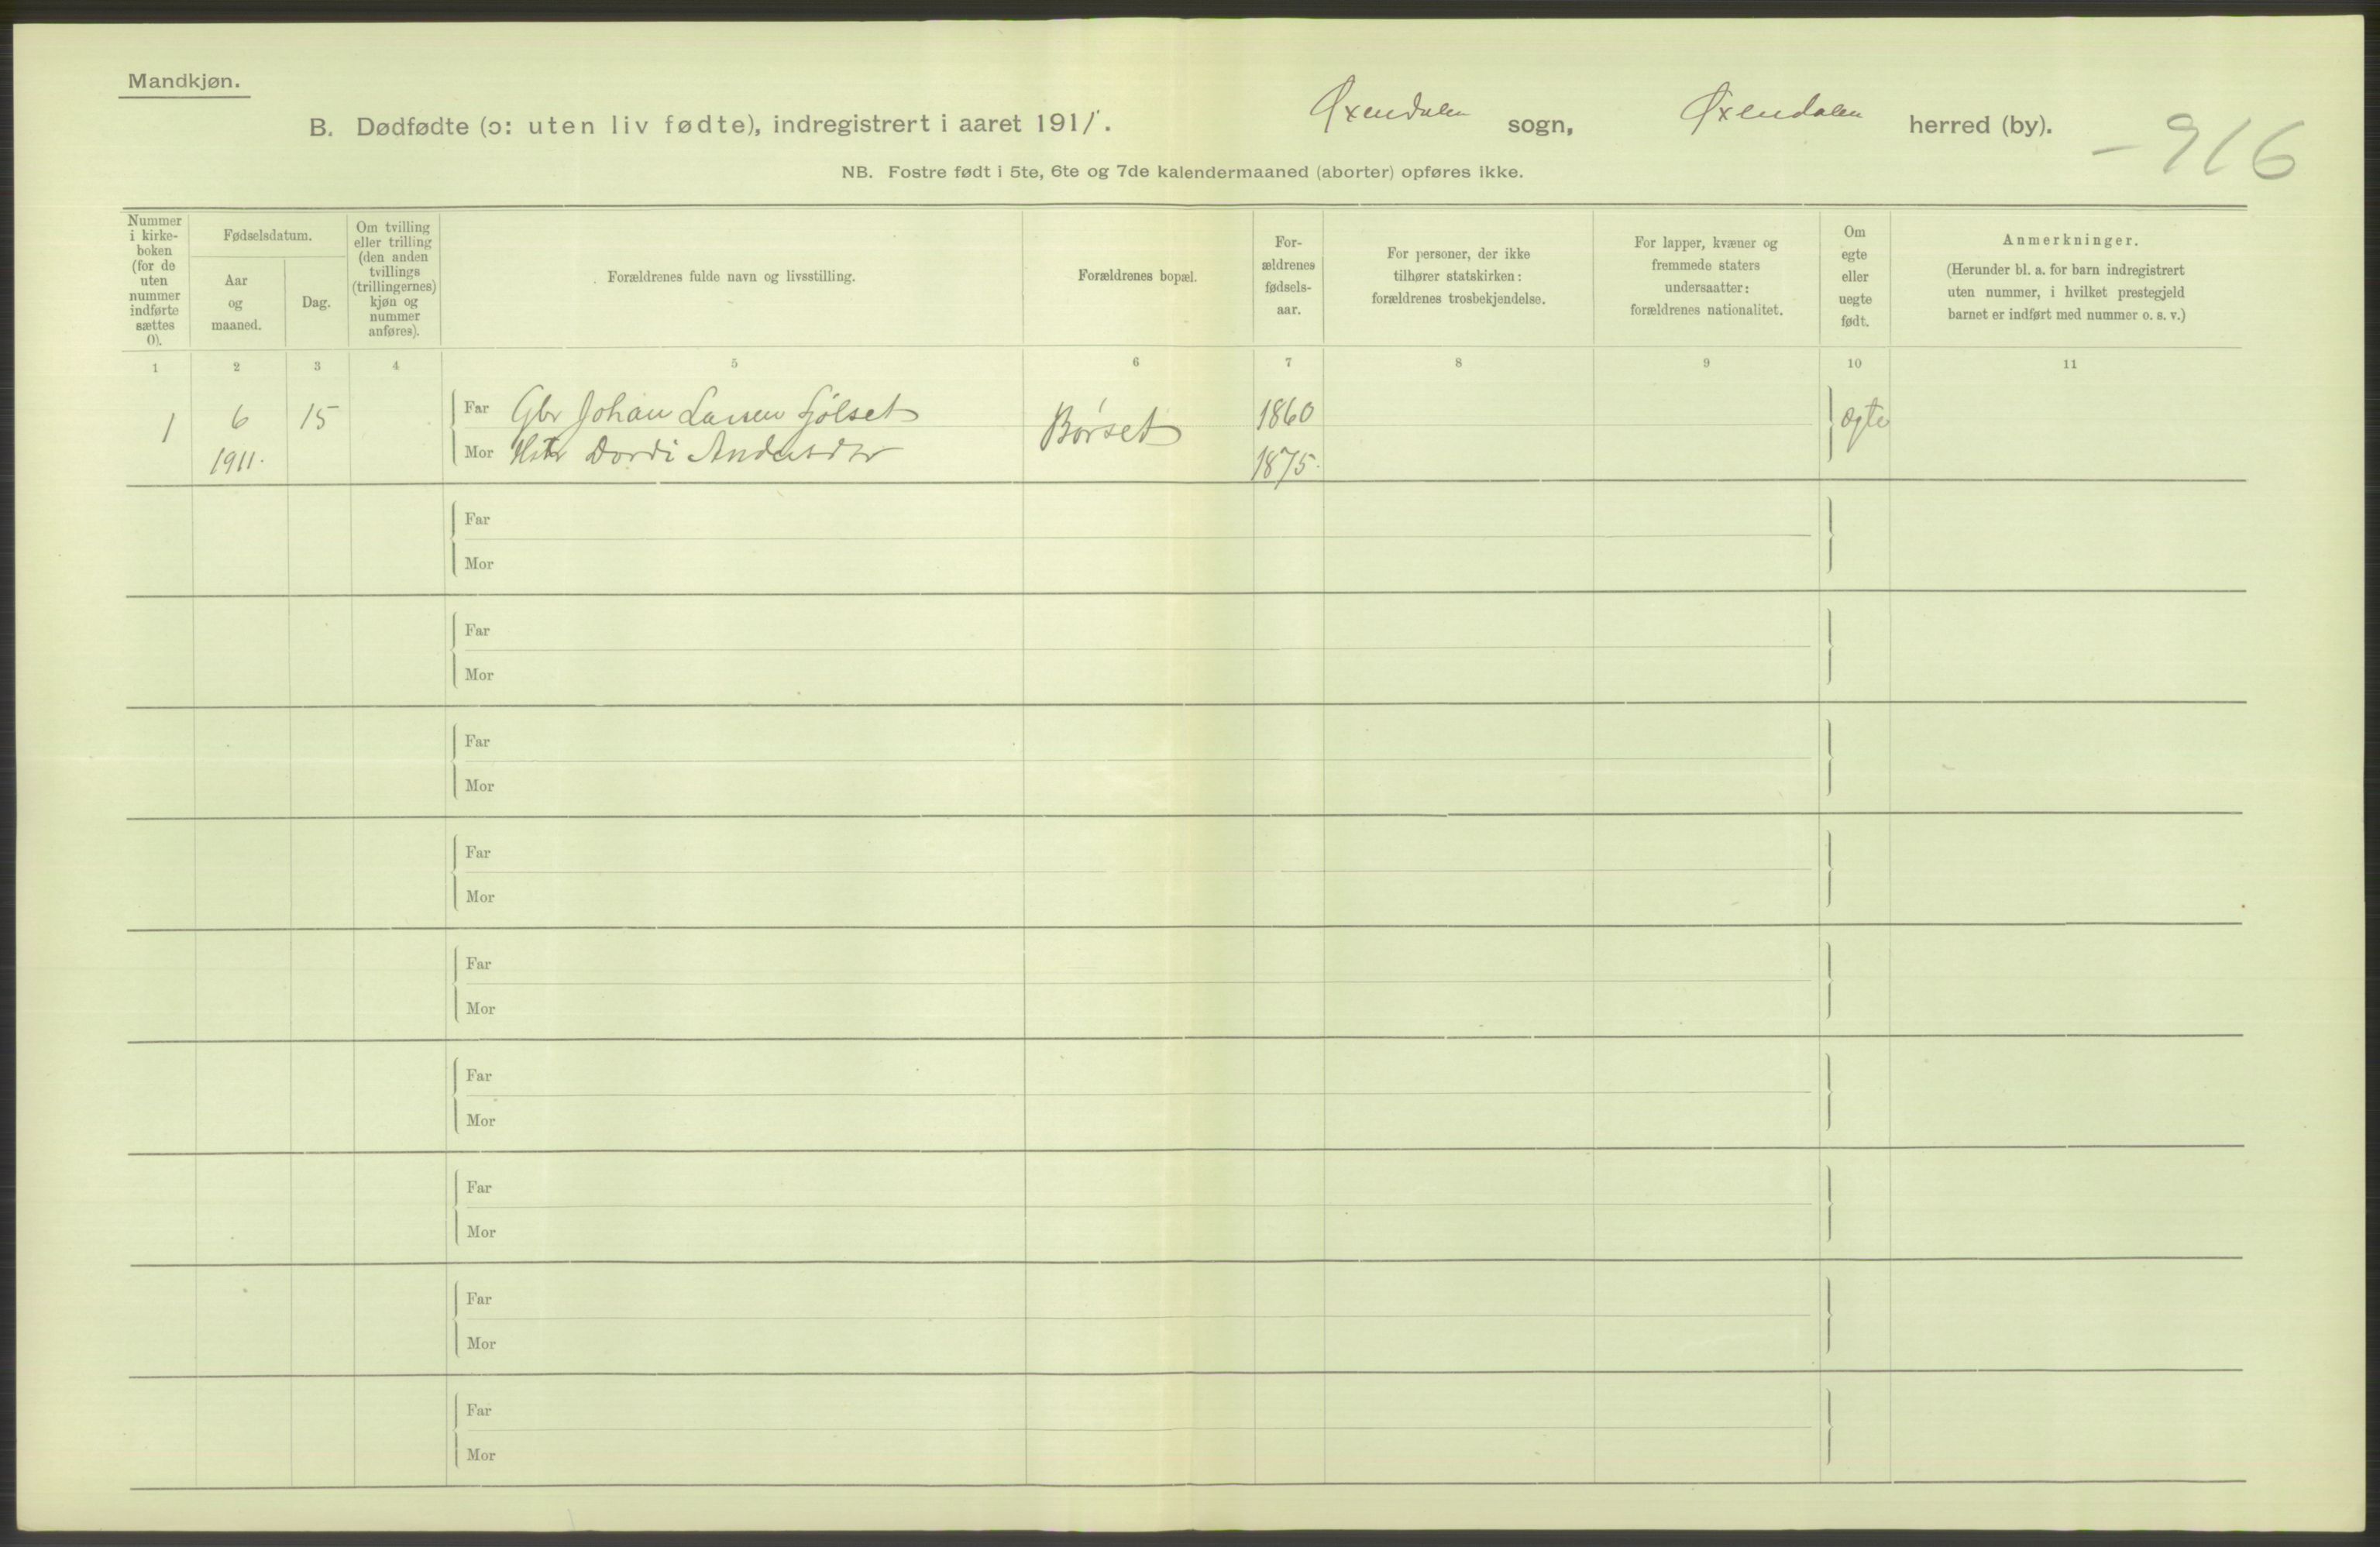 Mandkjøn.
B. Dødfødte (ɔ: uten liv fødte), indregistrert i aaret 1911. Øxendalen sogn, Øxendalen herred (by).
-916
NB. Fostre født i 5te, 6te og 7de kalendermaaned (aborter) opføres ikke.
Nummer
i kirke-
boken
(for de
uten
nummer
indførte
sættes
0).
Fødselsdatum.
Aar
og
maaned.
Dag.
Om tvilling
eller trilling
(den anden
tvillings
(trillingernes)
kjøn og
nummer
anføres).
Forældrenes fulde navn og livsstilling.
Forældrenes bopæl.
For-
ældrenes
fødsels-
aar.
For personer, der ikke
tilhører statskirken:
forældrenes trosbekjendelse.
For lapper, kvæner og
fremmede staters
undersaatter:
forældrenes nationalitet.
Om
egte
eller
uegte
født.
Anmerkninger.
(Herunder bl. a. for barn indregistrert
uten nummer, i hvilket prestegjeld
barnet er indført med nummer o. s. v.)
1 2 3 4 5 6 7 8 9 10 11
1 6 15 Far Gbr Johan Larsen Børset 1860 Ægte
1911. Mor Dordi Andersdtr 1875.
Far
Mor
Far
Mor
Far
Mor
Far
Mor
Far
Mor
Far
Mor
Far
Mor
Far
Mor
Far
Mor